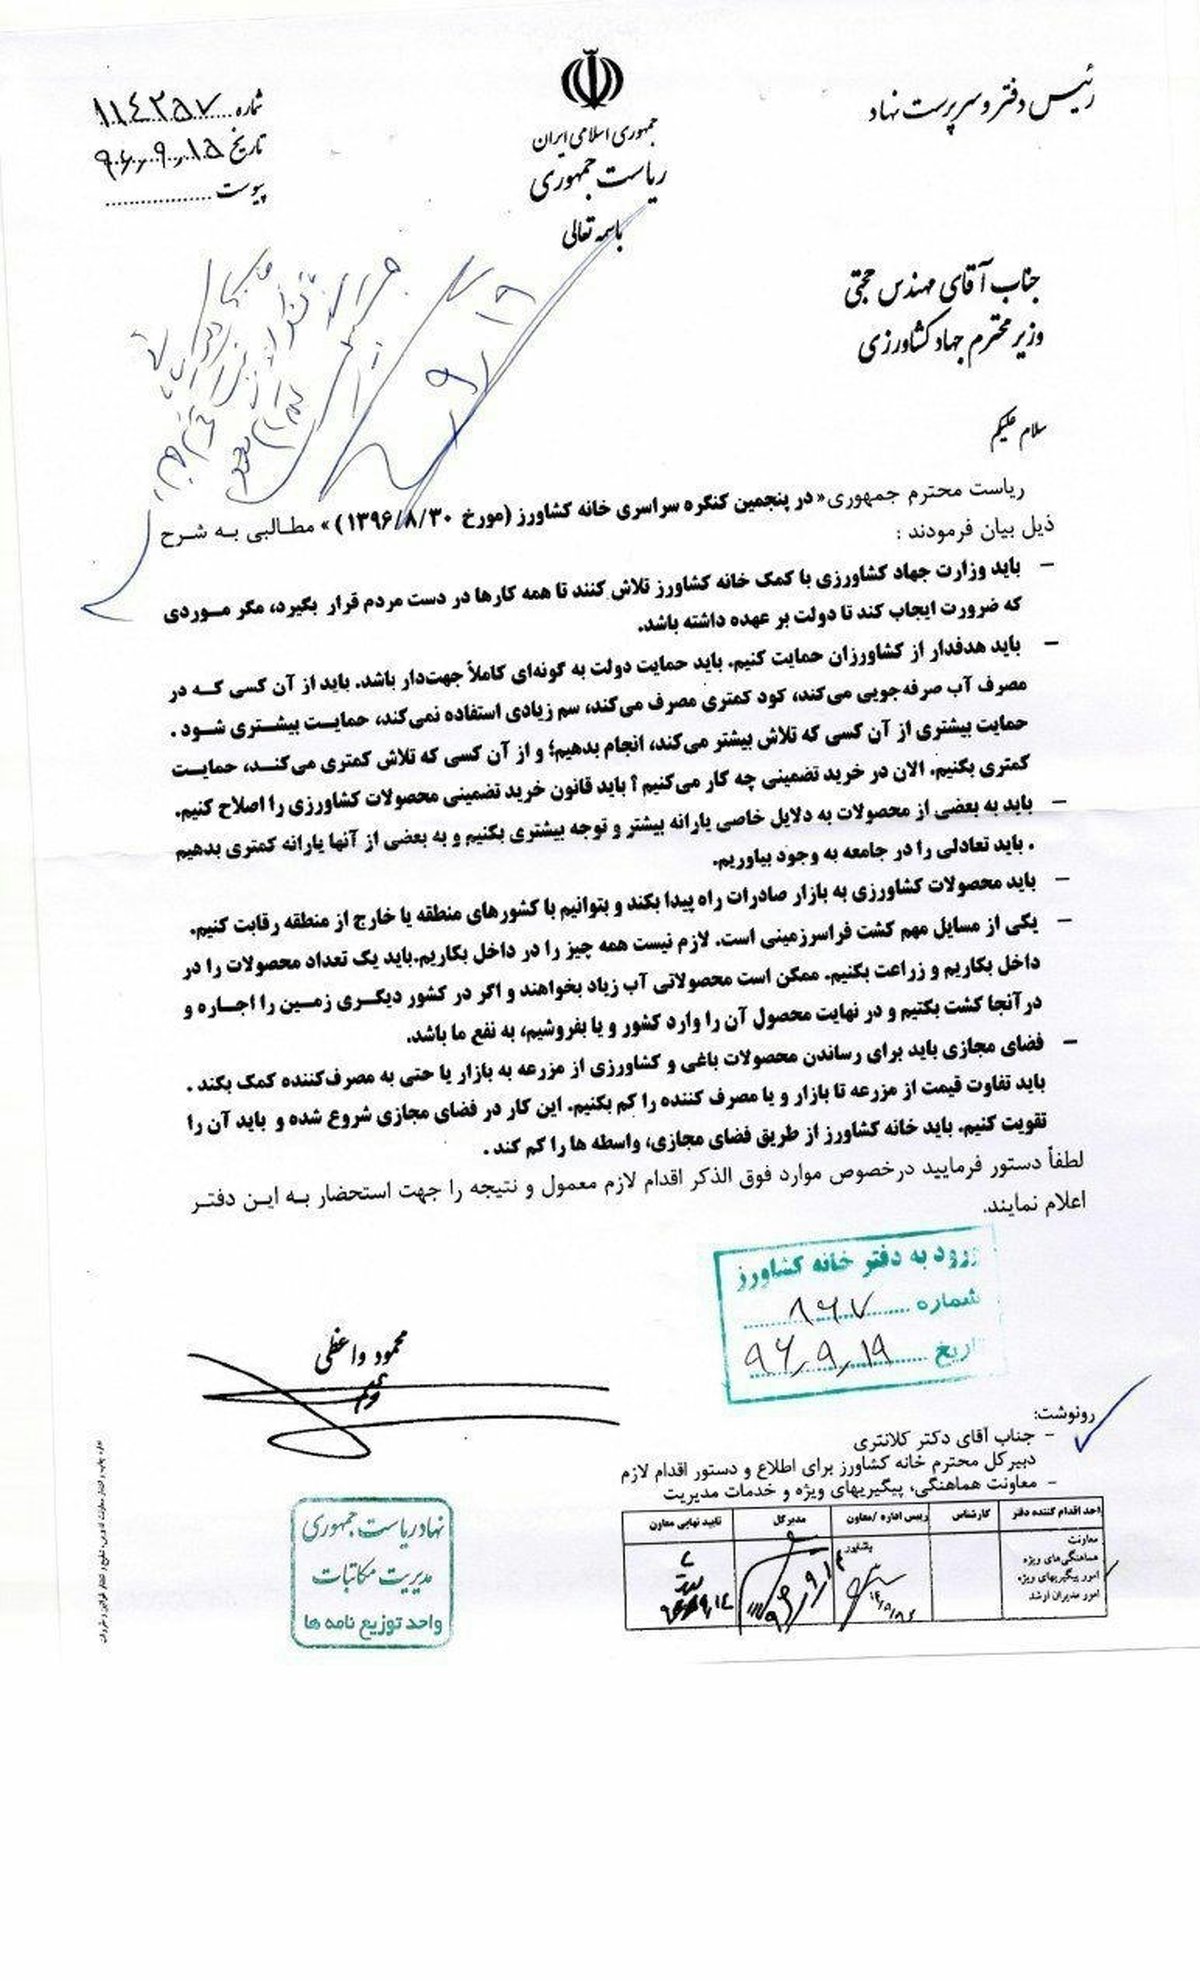 رئیس دفتر و سرپرست نهاد
جمهوری اسلامی ایران
ریاست جمهوری
باسمه تعالی
شماره ۱۱۴۲۵۷
تاریخ ۹۶,۹,۱۵
پیوست
جناب آقای مهندس حجتی
وزیر محترم جهاد کشاورزی
سلام علیکم
۹/۱۹
ریاست محترم جمهوری« در پنجمین کنگره سراسری خانه کشاورز (مورخ ۱۳۹۶/۸/۳۰) » مطالبی به شرح
ذیل بیان فرمودند :
– باید وزارت جهاد کشاورزی با کمک خانه کشاورز تلاش کنند تا همه کارها در دست مردم قرار بگیرد، مگر موردی
که ضرورت ایجاب کند تا دولت بر عهده داشته باشد.
– باید هدفدار از کشاورزان حمایت کنیم. باید حمایت دولت به گونه‌ای کاملاً جهت‌دار باشد. باید از آن کسی که در
مصرف آب صرفه‌جویی می‌کند، کود کمتری مصرف می‌کند، سم زیادی استفاده نمی‌کند، حمایت بیشتری شود .
حمایت بیشتری از آن کسی که تلاش بیشتر می‌کند، انجام بدهیم؛ و از آن کسی که تلاش کمتری می‌کند، حمایت
کمتری بکنیم. الان در خرید تضمینی چه کار می‌کنیم ؟ باید قانون خرید تضمینی محصولات کشاورزی را اصلاح کنیم.
– باید به بعضی از محصولات به دلایل خاصی یارانه بیشتر و توجه بیشتری بکنیم و به بعضی از آنها یارانه کمتری بدهیم
. باید تعادلی را در جامعه به وجود بیاوریم.
– باید محصولات کشاورزی به بازار صادرات راه پیدا بکند و بتوانیم با کشورهای منطقه یا خارج از منطقه رقابت کنیم.
– یکی از مسایل مهم کشت فراسرزمینی است. لازم نیست همه چیز را در داخل بکاریم.باید یک تعداد محصولات را در
داخل بکاریم و زراعت بکنیم. ممکن است محصولاتی آب زیاد بخواهند و اگر در کشور دیگری زمین را اجاره و
در آنجا کشت بکنیم و در نهایت محصول آن را وارد کشور و یا بفروشیم، به نفع ما باشد.
– فضای مجازی باید برای رساندن محصولات باغی و کشاورزی از مزرعه به بازار یا حتی به مصرف‌کننده کمک بکند .
باید تفاوت قیمت از مزرعه تا بازار و یا مصرف کننده را کم بکنیم. این کار در فضای مجازی شروع شده و باید آن را
تقویت کنیم. باید خانه کشاورز از طریق فضای مجازی، واسطه ها را کم کند .
لطفاً دستور فرمایید درخصوص موارد فوق الذکر اقدام لازم معمول و نتیجه را جهت استحضار به این دفتر
اعلام نمایند.
ورود به دفتر خانه کشاورز
شماره ۸۶۷
تاریخ ۹۶,۹,۱۹
محمود واعظی
رونوشت:
– جناب آقای دکتر کلانتری
دبیرکل محترم خانه کشاورز برای اطلاع و دستور اقدام لازم
– معاونت هماهنگی، پیگیریهای ویژه و خدمات مدیریت
واحد اقدام کننده دفتر کارشناس رییس اداره /معاون مدیرکل تایید نهایی معاون
معاونت
هماهنگی‌های ویژه
امور پیگیریهای ویژه
امور مدیران ارشد
نهاد ریاست جمهوری
مدیریت مکاتبات
واحد توزیع نامه ها